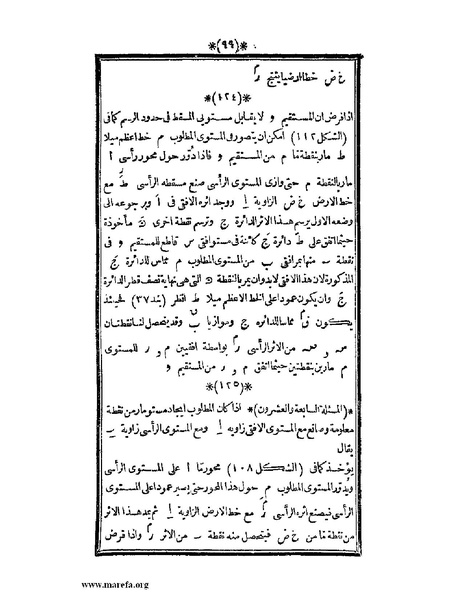 *(٩٩)*
غ ض خطا ارضيا ينتج رَ
*(١٢٤)*
اذا فرض ان المستقيم و لا يقابل مستويي المسقط فى حدود الرسم كما فى
(الشكل ١١٢) امكن ان يتصور فى المستوى المطلوب م خط اعظم ميلا
ط مار بنقطة ما م من المستقيم و فاذا دُوّر حول محور رأسى أ
مار بالنقطة م حتى وازى المستوى الرأسى صنع مسقطه الرأسى طَ مع
خط الارض غ ض الزاوية أ ووجد اثره الافقى فى أ وبرجوعه الى
وضعه الاول يرسم هذا الاثر الدائرة ج وترسم نقطة اخرى ﻫ مأخوذة
حيثما اتفق على طَ دائرة جَ كائنة فى مستو افقى س قاطع للمستقيم و فى
نقطة ب منها يمر افقى ب من المستوى المطلوب م مماس للدائرة جَ
المذكورة لان هذا الافقى لابد وان يمر بالنقطة ﻫ التى هى نهاية نصف قطر الدائرة
جَ وان يكون عمودا على الخط الاعظم ميلا ط انظر (بند ٣٧) فحينئذ
يكون فَ مماسا للدائرة ج وموازيا ب وقد يتحصل لنا نقطتان
من الاثر الرأسى رَ بواسطة افقيين م و ر للمستوى
م مارين بنقطتين حيثما اتفق م و ر من المستقيم و
*(١٢٥)*
*(المسئلة السابعة والعشرون)* اذا كان المطلوب ايجاد مستو مار من نقطة
معلومة وصانع مع المستوى الافقى زاوية أ ومع المستوى الرأسى زاوية ب
يقال
يؤخذ كما فى (الشكل ١٠٨) محور ما أ على المستوى الرأسى
ويُدوّر المستوى المطلوب م حول هذا المحور حتى يصير عمودا على المستوى
الرأسى فيصنع اثره الرأسى رَ مع خط الارض الزاوية أ ثم يمد هذا الاثر
من نقطة ما من غ ض فيتحصل منه نقطة ب من الاثر رَ واذا فرض
www.marefa.org